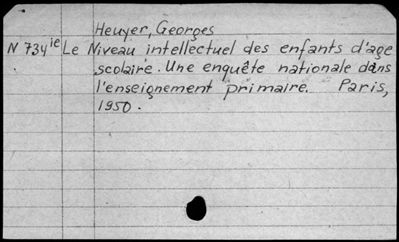 Heuyer, Georges
N 734ie Le Niveau intellectuel des enfants d'age
scolaire. Une enquête nationale dans
l'enseignement primaire. Paris,
1950.